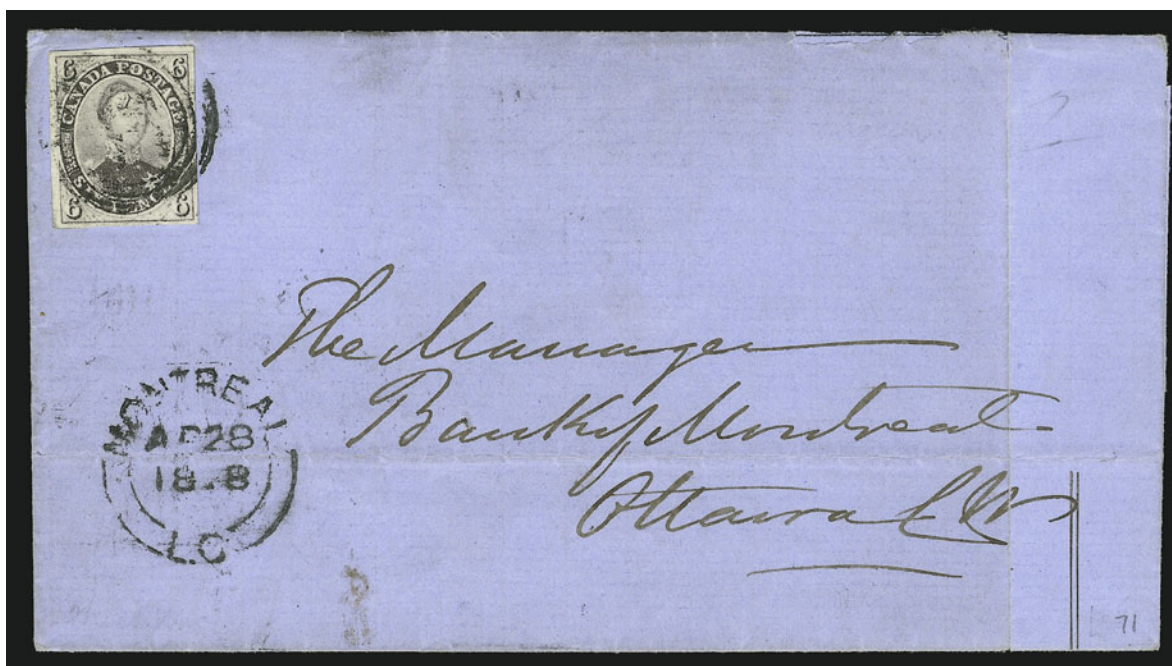 6 6
CANADA POSTAGE
6 6
The Manager
Bank of Montreal
Ottawa C W
MONTREAL
AP 28
18 8
L.C
71